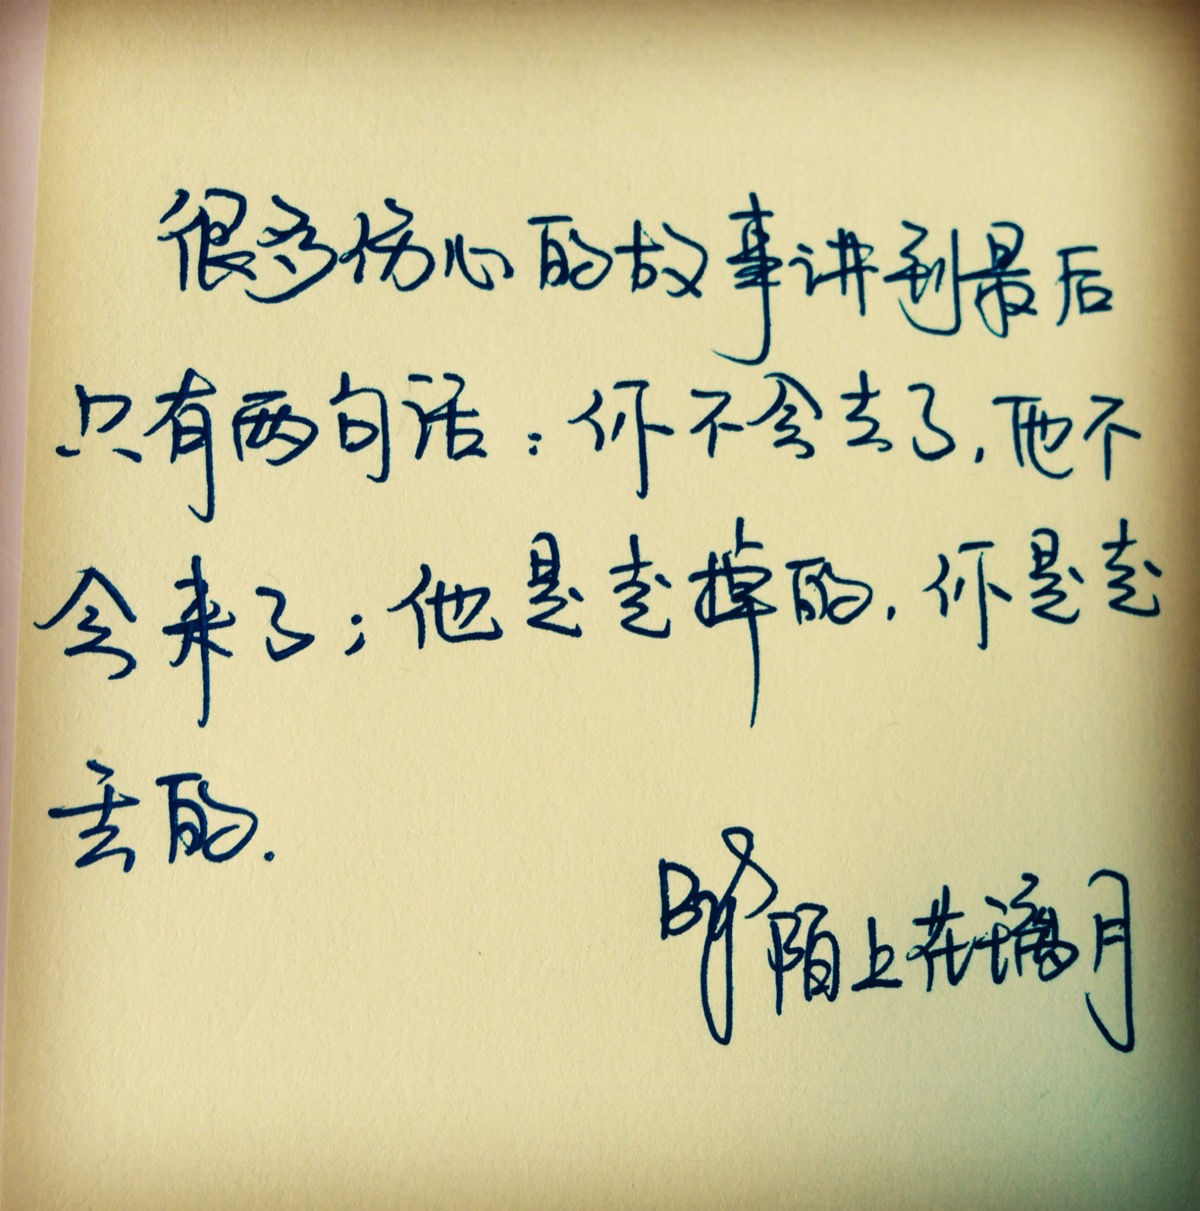 很多伤心的故事讲到最后
只有两句话：你不会去了，他不
会来了；他是走掉的，你是走
丢的.
By 陌上花璃月